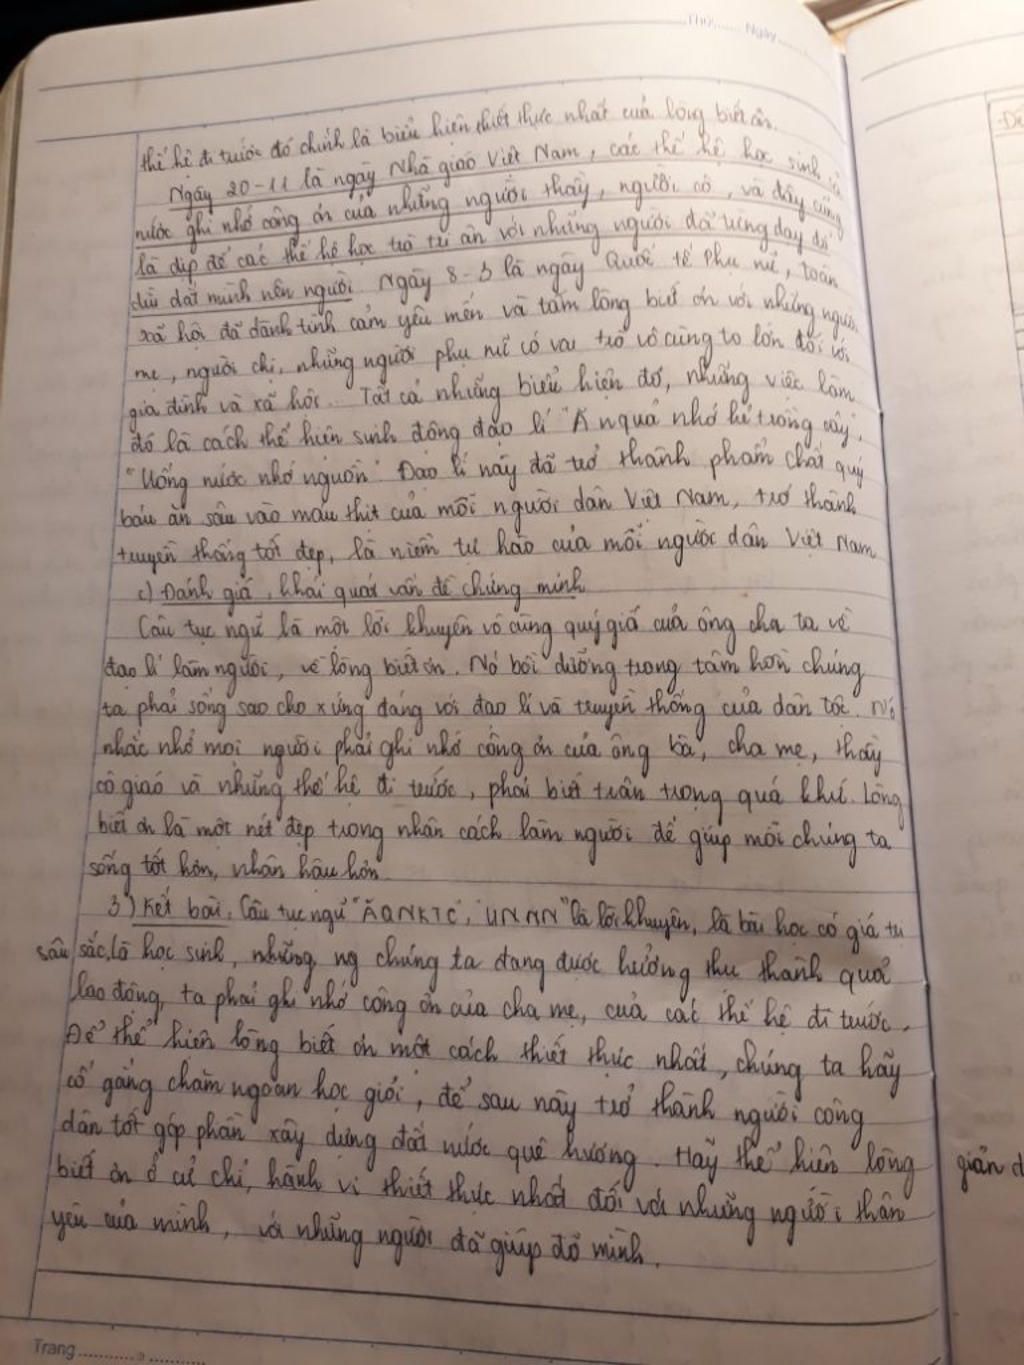 Thứ...... Ngày......
thế hệ đi trước đó chính là biểu hiện thiết thực nhất của lòng biết ơn.
Ngày 20-11 là ngày Nhà giáo Việt Nam, các thế hệ học sinh cả
nước ghi nhớ công ơn của những người thầy, người cô, và đây cũng
là dịp để các thế hệ học trò tri ân với những người đã từng dạy dỗ
dìu dắt mình nên người. Ngày 8-3 là ngày Quốc tế Phụ nữ, toàn
xã hội đã dành tình cảm yêu mến và tấm lòng biết ơn với những người
mẹ, người chị, những người phụ nữ có vai trò vô cùng to lớn đối với
gia đình và xã hội... Tất cả những biểu hiện đó, những việc làm
đó là cách thể hiện sinh động đạo lí "Ăn quả nhớ kẻ trồng cây",
"Uống nước nhớ nguồn". Đạo lí này đã trở thành phẩm chất quý
báu ăn sâu vào máu thịt của mỗi người dân Việt Nam, trở thành
truyền thống tốt đẹp, là niềm tự hào của mỗi người dân Việt Nam
c) Đánh giá, khái quát vấn đề chứng minh
Câu tục ngữ là một lời khuyên vô cùng quý giá của ông cha ta về
đạo lí làm người, về lòng biết ơn. Nó bồi dưỡng trong tâm hồn chúng
ta phải sống sao cho xứng đáng với đạo lí và truyền thống của dân tộc. Nó
nhắc nhở mọi người phải ghi nhớ công ơn của ông bà, cha mẹ, thầy
cô giáo và những thế hệ đi trước, phải biết trân trọng quá khứ. Lòng
biết ơn là một nét đẹp trong nhân cách làm người để giúp mỗi chúng ta
sống tốt hơn, nhân hậu hơn
3) Kết bài. Câu tục ngữ "ĂQNKTC", "UNNN" là lời khuyên, là bài học có giá trị
sâu sắc, là học sinh, những ng chúng ta đang được hưởng thụ thành quả
lao động, ta phải ghi nhớ công ơn của cha mẹ, của các thế hệ đi trước.
Để thể hiện lòng biết ơn một cách thiết thực nhất, chúng ta hãy
cố gắng chăm ngoan học giỏi, để sau này trở thành người công
dân tốt góp phần xây dựng đất nước quê hương. Hãy thể hiện lòng
biết ơn ở cử chỉ, hành vi thiết thực nhất đối với những người thân
yêu của mình, với những người đã giúp đỡ mình.
Trang
giản d